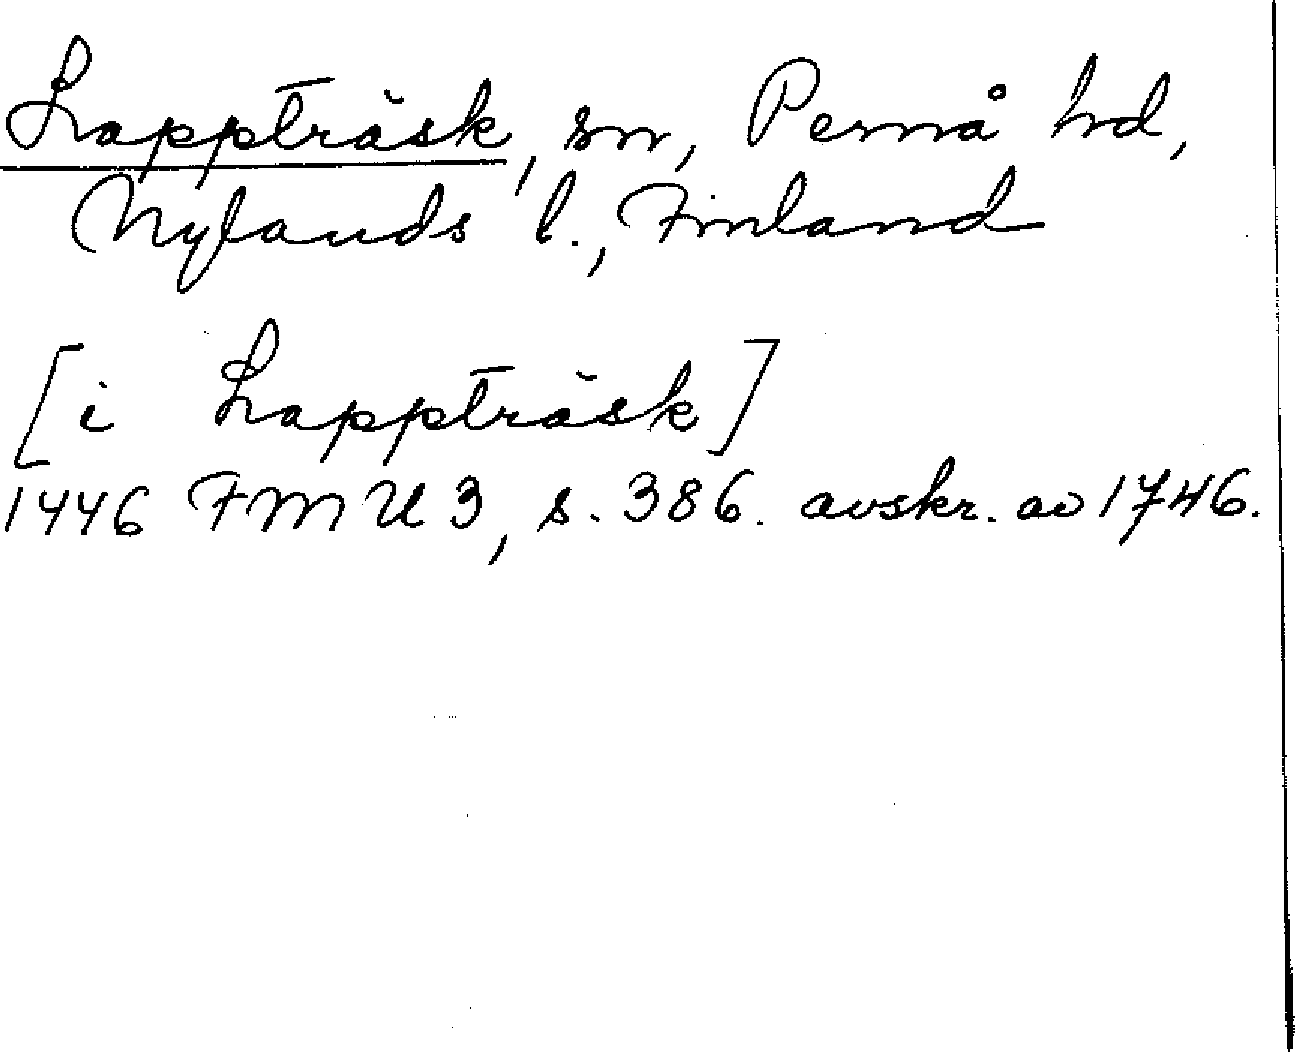 Lappträsk, sn, Pernå hd,
Nylands l., Finland
[i Lappträsk]
1446 FMU 3, s. 386. avskr. av 1746.